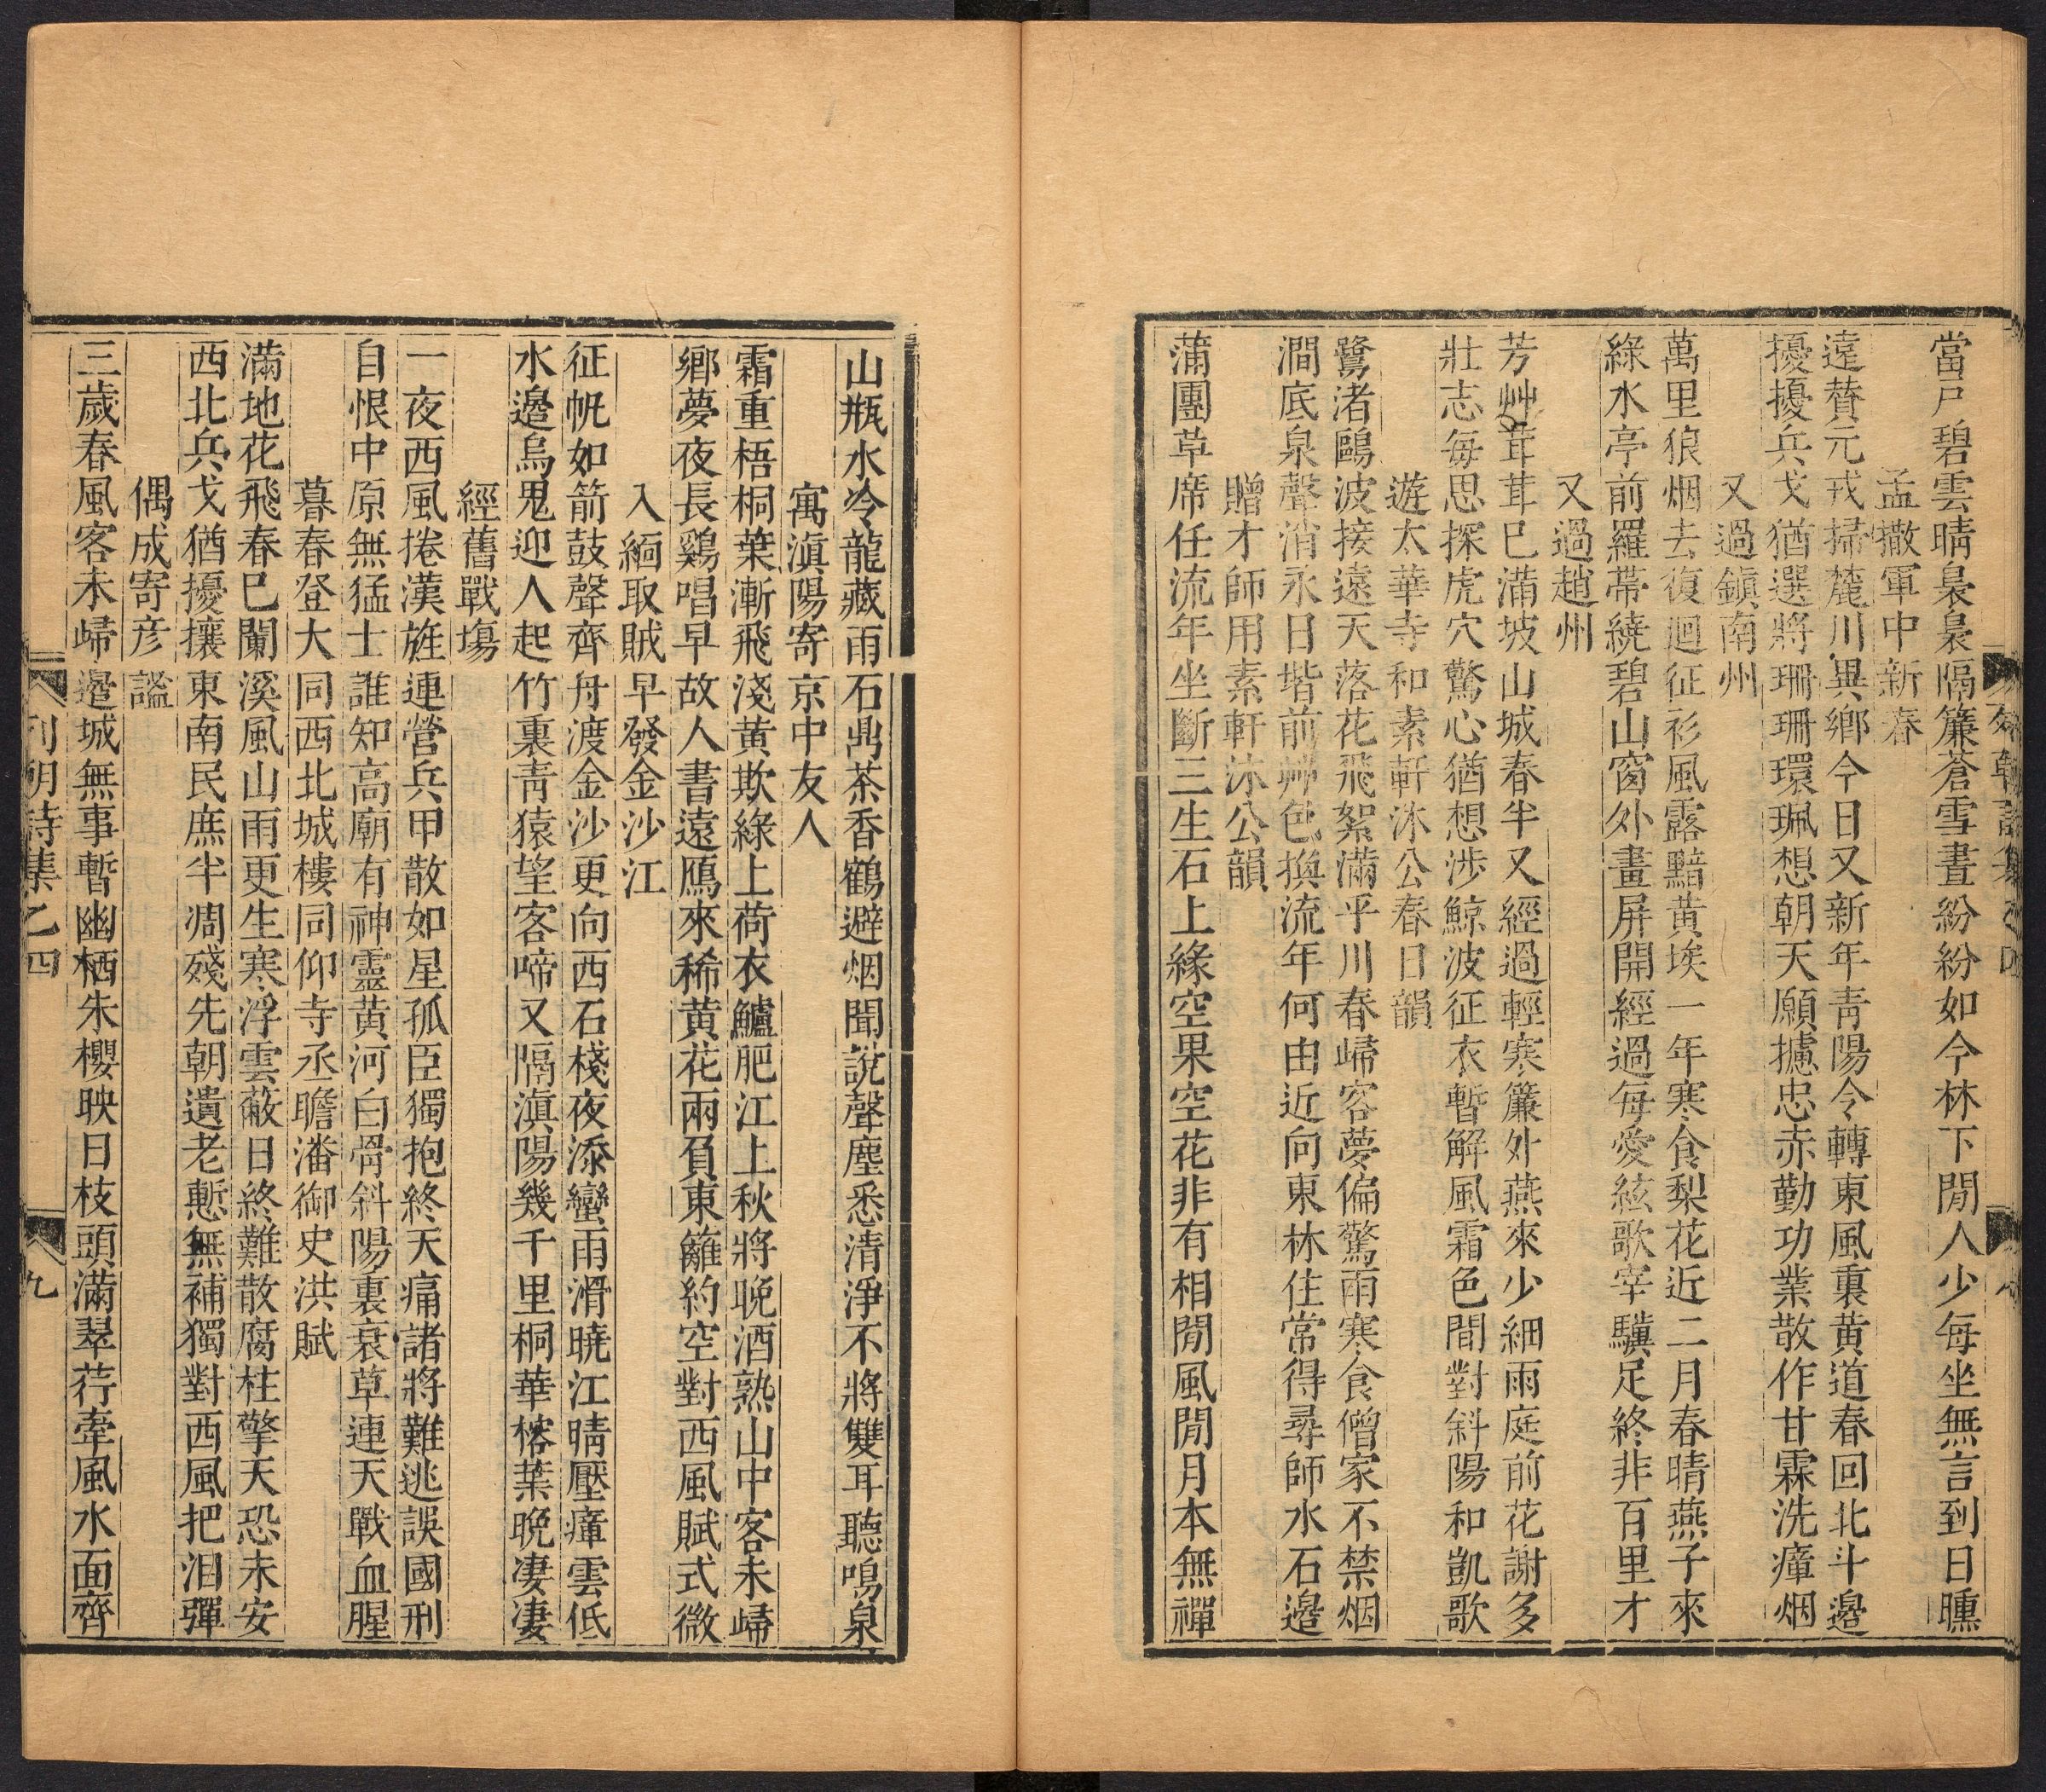 當戶碧雲晴裊裊隔簾蒼雪晝紛紛如今林下閒人少每坐無言到日曛
孟撒軍中新春
遠賛元戎掃麓川異鄉今日又新年青陽令轉東風裏黃道春回北斗邉
擾擾兵戈猶選將珊珊環珮想朝天願攄忠赤勤功業散作甘霖洗瘴烟
又過鎮南州
萬里狼烟去復迴征衫風露黯黃埃一年寒食梨花近二月春晴燕子來
綠水亭前羅帶繞碧山窗外畫屏開經過每愛絃歌宰驥足終非百里才
又過趙州
芳艸茸茸已滿坡山城春半又經過輕寒簾外燕來少細雨庭前花謝多
壯志每思探虎穴驚心猶想涉鯨波征衣暫解風霜色閒對斜陽和凱歌
遊太華寺和素軒沐公春日韻
鷺渚鷗波接遠天落花飛絮滿平川春歸客夢偏驚雨寒食僧家不禁烟
澗底泉聲消永日堦前艸色換流年何由近向東林住常得尋師水石邉
贈才師用素軒沐公韻
蒲團草席任流年坐斷三生石上緣空果空花非有相閒風閒月本無禪
山瓶水冷龍藏雨石鼎茶香鶴避烟聞說聲塵悉清淨不將雙耳聽鳴泉
寓滇陽寄京中友人
霜重梧桐葉漸飛淺黃欺綠上荷衣鱸肥江上秋將晚酒熟山中客未歸
鄉夢夜長鷄唱早故人書遠鴈來稀黃花兩負東籬約空對西風賦式微
入緬取賊早發金沙江
征帆如箭鼓聲齊舟渡金沙更向西石棧夜添蠻雨滑曉江晴壓瘴雲低
水邉烏鬼迎人起竹裏青猿望客啼又隔滇陽幾千里桐華榕葉晚凄凄
經舊戰塲
一夜西風捲漢旌連營兵甲散如星孤臣獨抱終天痛諸將難逃誤國刑
自恨中原無猛士誰知高廟有神靈黃河白骨斜陽裏衰草連天戰血腥
暮春登大同西北城樓同仰寺丞瞻潘御史洪賦
滿地花飛春已闌溪風山雨更生寒浮雲蔽日終難散腐柱擎天恐未安
西北兵戈猶擾攘東南民庶半凋殘先朝遺老慙無補獨對西風把泪彈
偶成寄彥謐
三歲春風客未歸邉城無事暫幽栖朱櫻映日枝頭滿翠荇牽風水面齊
列朝詩集乙四
九